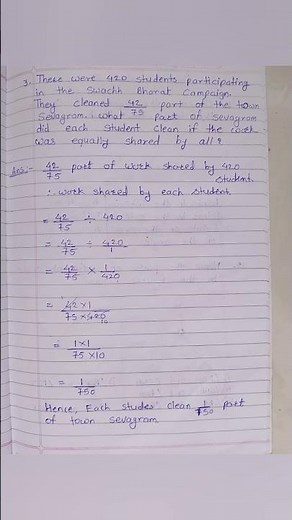 3. There were 420 students participating
in the Swachh Bharat Campaign.
They cleaned 42/75 part of the town
Sevagram. What part of Sevagram
did each student clean if the work
was equally shared by all?
Ans:- 42/75 part of work shared by 420
student.
∴ work shared by each student
= 42/75 ÷ 420
= 42/75 ÷ 420/1
= 42/75 × 1/420
= 42×1 / 75×420 10
= 1×1 / 75×10
= 1/750
Hence, Each studes clean 1/750 part
of town Sevagram.